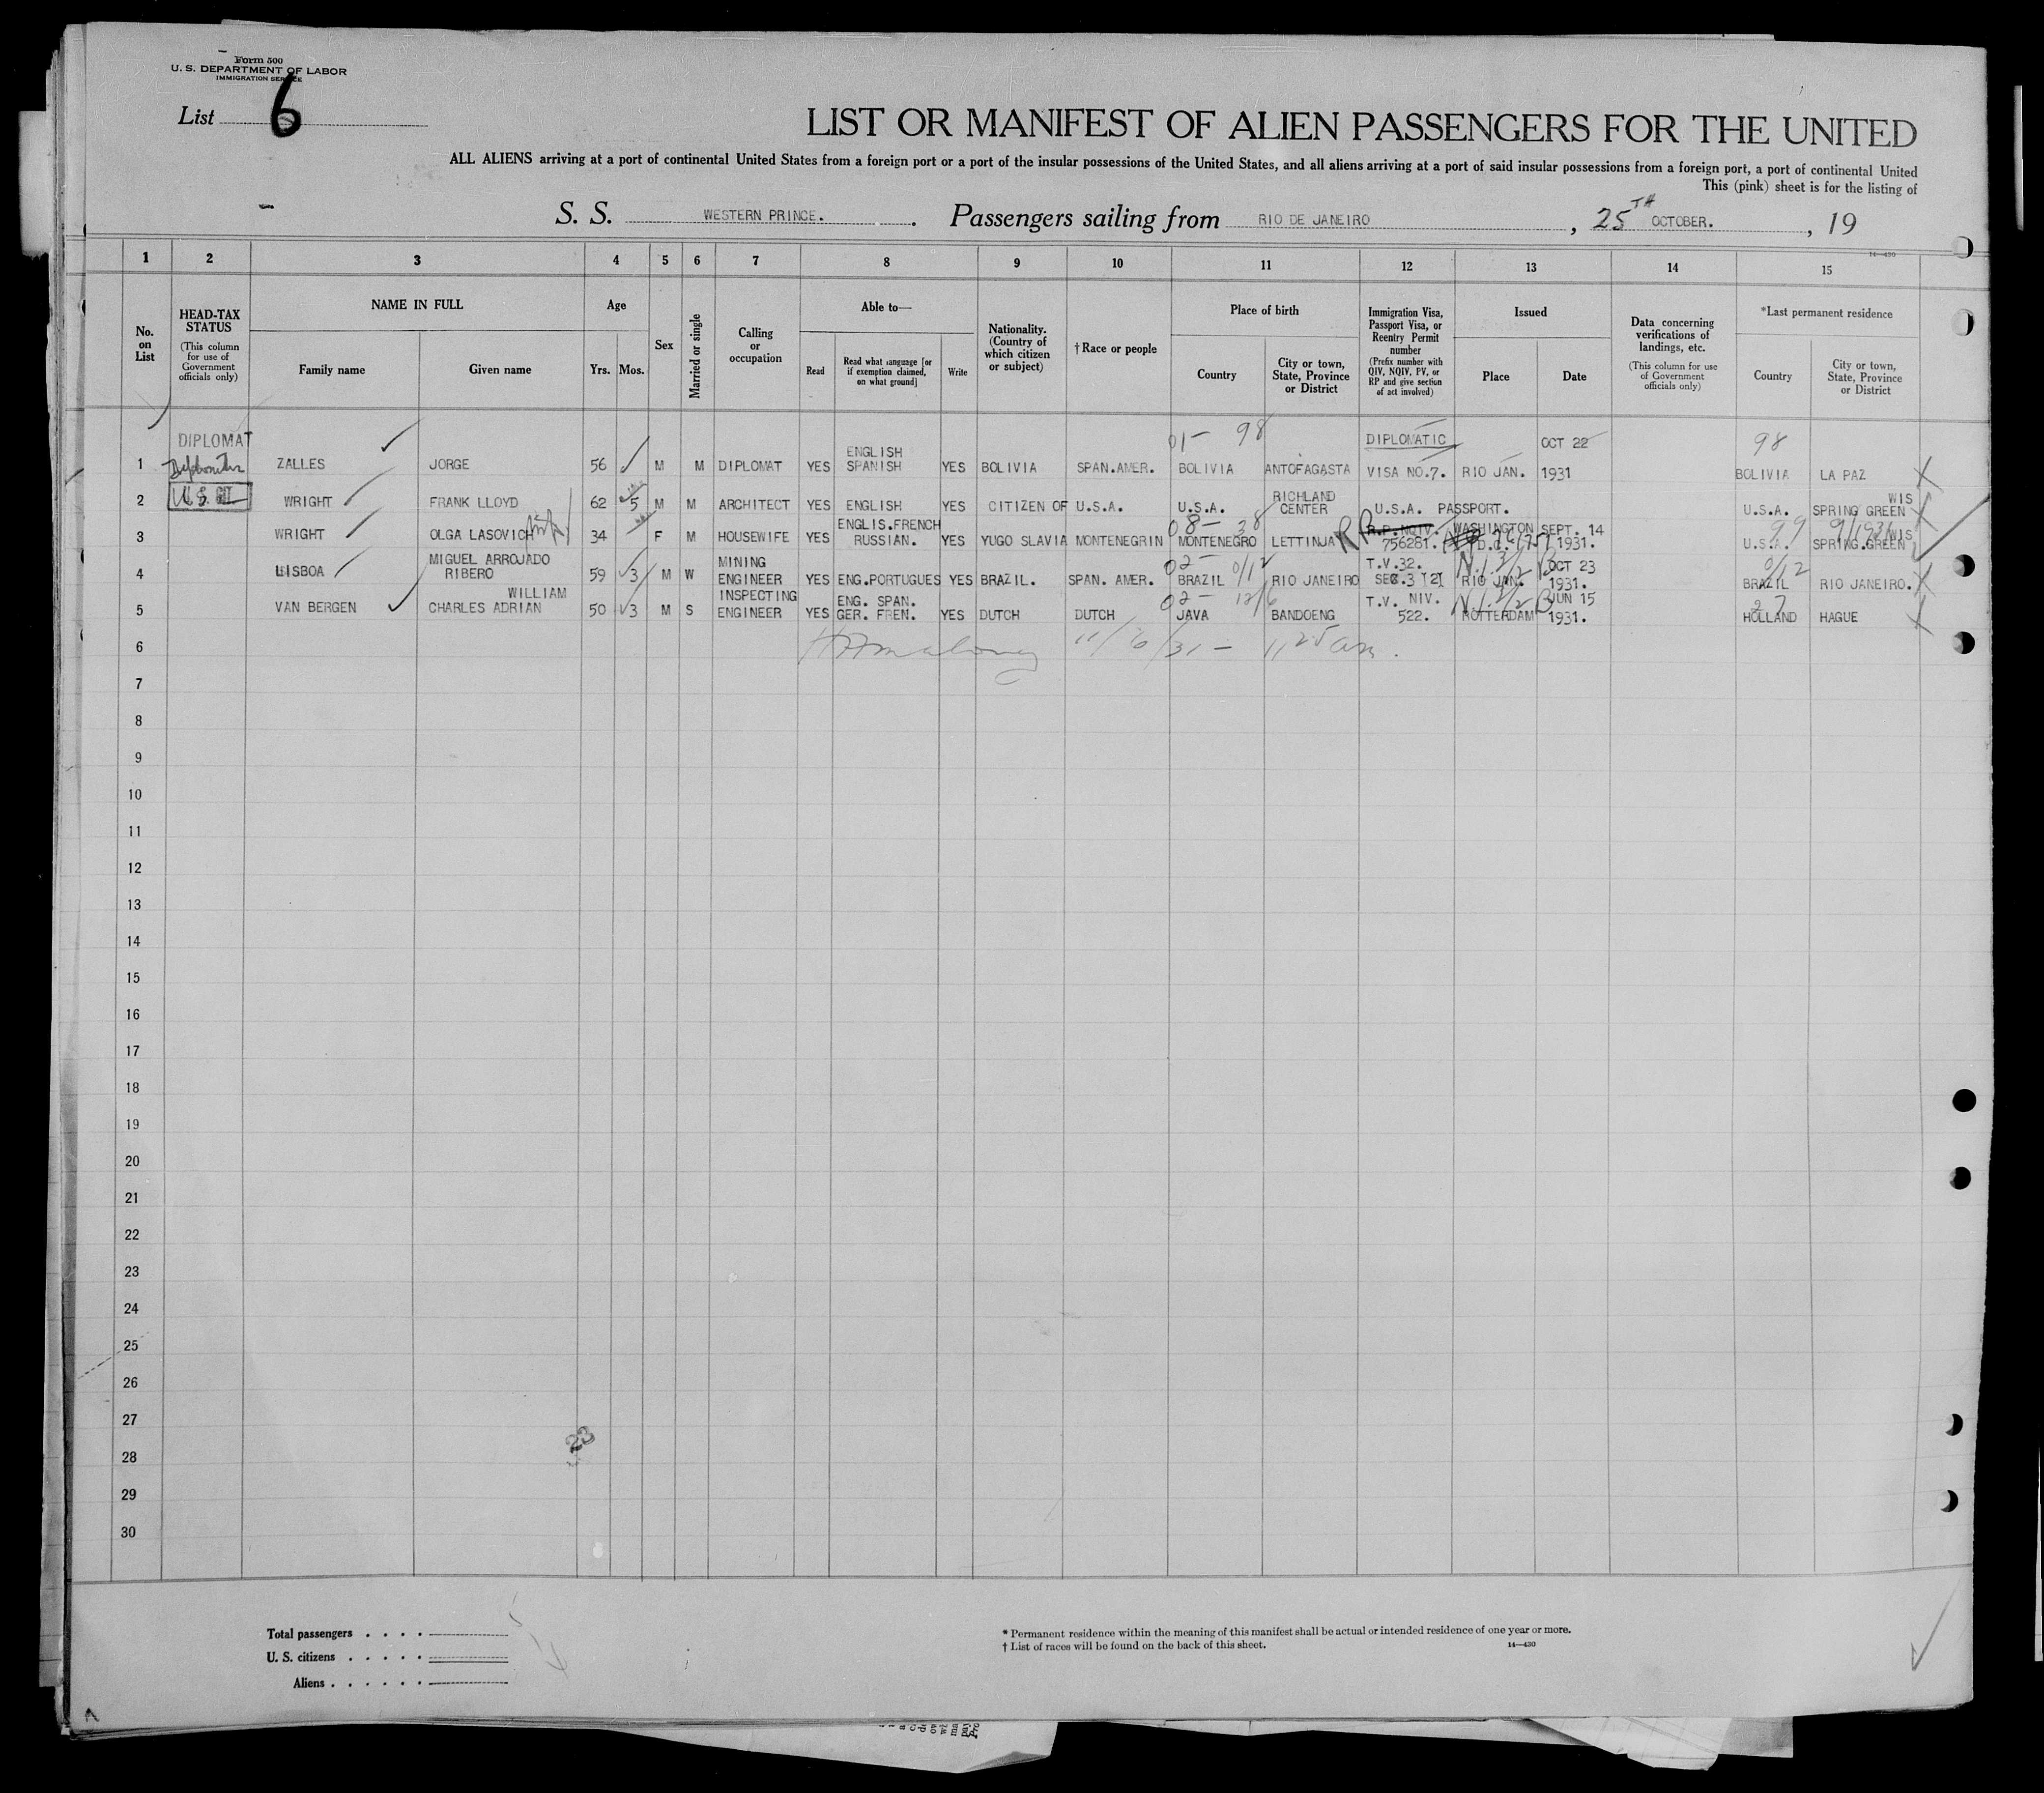 Form 500
U. S. DEPARTMENT OF LABOR
IMMIGRATION SERVICE
List 6
LIST OR MANIFEST OF ALIEN PASSENGERS FOR THE UNITED
ALL ALIENS arriving at a port of continental United States from a foreign port or a port of the insular possessions of the United States, and all aliens arriving at a port of said insular possessions from a foreign port, a port of continental United
This (pink) sheet is for the listing of
S. S. WESTERN PRINCE. Passengers sailing from RIO DE JANEIRO, 25TH OCTOBER., 19
14—430
1 2 3 4 5 6 7 8 9 10 11 12 13 14 15
No. on List
HEAD-TAX STATUS (This column for use of Government officials only)
NAME IN FULL
Family name Given name
Age
Yrs. Mos.
Sex
Married or single
Calling or occupation
Able to—
Read Read what language [or if exemption claimed, on what ground] Write
Nationality. (Country of which citizen or subject)
†Race or people
Place of birth
Country City or town, State, Province or District
Immigration Visa, Passport Visa, or Reentry Permit number (Prefix number with QIV, NQIV, PV, or RP and give section of act involved)
Issued
Place Date
Data concerning verifications of landings, etc. (This column for use of Government officials only)
*Last permanent residence
Country City or town, State, Province or District
DIPLOMAT 01- 98 DIPLOMATIC OCT 22 98
1 ZALLES JORGE 56 M M DIPLOMAT YES ENGLISH SPANISH YES BOLIVIA SPAN.AMER. BOLIVIA ANTOFAGASTA VISA NO.7. RIO JAN. 1931 BOLIVIA LA PAZ
2 WRIGHT FRANK LLOYD 62 5 M M ARCHITECT YES ENGLISH YES CITIZEN OF U.S.A. U.S.A. RICHLAND CENTER U.S.A. PASSPORT. U.S.A. SPRING GREEN WIS
3 WRIGHT OLGA LASOVICH 34 F M HOUSEWIFE YES ENGLIS.FRENCH RUSSIAN. YES YUGO SLAVIA MONTENEGRIN 08- 38 MONTENEGRO LETTINJA RP R.P. NQIV. 756281. WASHINGTON D.C. SEPT. 14 1931. 99 U.S.A. SPRING.GREEN WIS
4 LISBOA MIGUEL ARROJADO RIBERO 59 3 M W MINING ENGINEER YES ENG.PORTUGUES YES BRAZIL. SPAN. AMER. 02- 0/12 BRAZIL RIO JANEIRO T.V.32. SEC.3 (2) RIO JAN. OCT 23 1931. 0/12 BRAZIL RIO JANEIRO.
5 VAN BERGEN WILLIAM CHARLES ADRIAN 50 3 M S INSPECTING ENGINEER YES ENG. SPAN. GER. FREN. YES DUTCH DUTCH 02- 12/6 JAVA BANDOENG T.V. NIV. 522. ROTTERDAM JUN 15 1931. 27 HOLLAND HAGUE
6 11/6/31 - 11 25 am.
7
8
9
10
11
12
13
14
15
16
17
18
19
20
21
22
23
24
25
26
27
28
29
30
23
Total passengers . . . .
U. S. citizens . . . . .
Aliens . . . . . .
* Permanent residence within the meaning of this manifest shall be actual or intended residence of one year or more.
† List of races will be found on the back of this sheet. 14—430